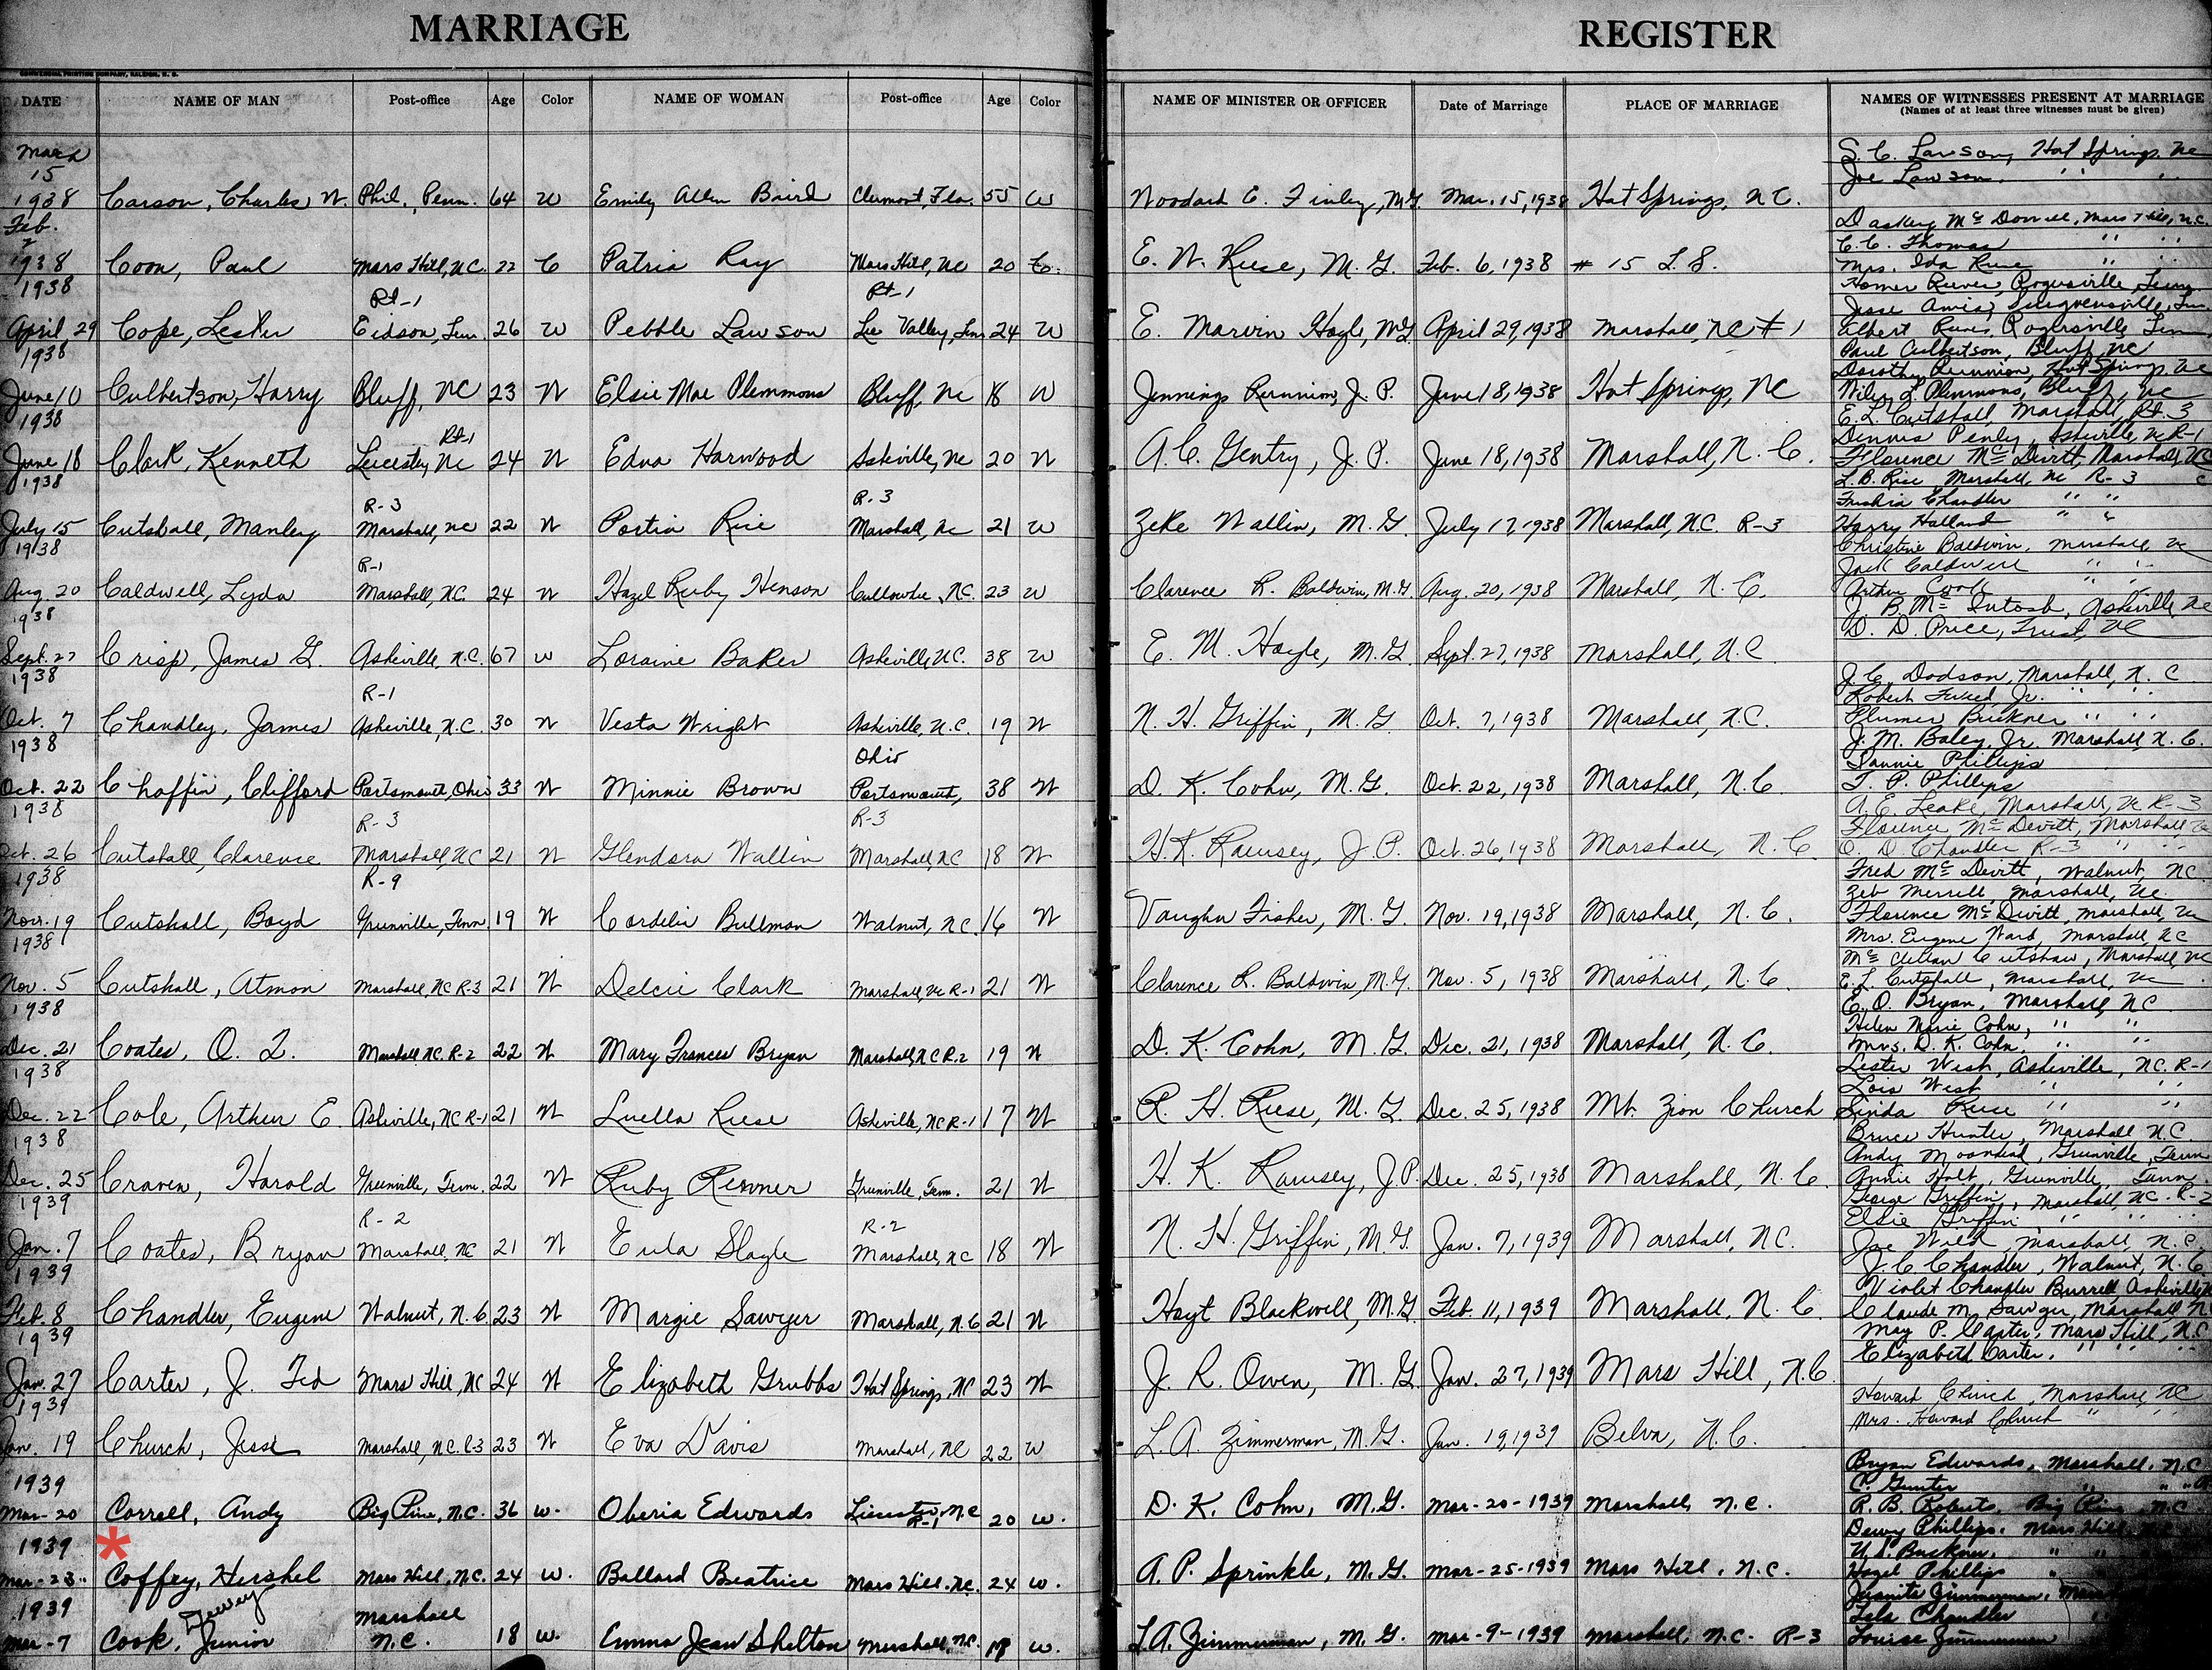 MARRIAGE REGISTER
COMMERCIAL PRINTING COMPANY, RALEIGH, N. C.
DATE NAME OF MAN Post-office Age Color NAME OF WOMAN Post-office Age Color NAME OF MINISTER OR OFFICER Date of Marriage PLACE OF MARRIAGE NAMES OF WITNESSES PRESENT AT MARRIAGE
(Names of at least three witnesses must be given)
March
15
S. C. Lawson, Hot Springs, NC
Joe Lawson " "
1938 Carson, Charles W. Phil., Penn. 64 W Emily Allen Baird Clermont, Fla. 55 W Woodard E. Finley, M.G. Mar. 15, 1938 Hot Springs, N.C.
Feb.
2
McDowell, Mars Hill, N.C.
C. C. Thomas " "
1938 Coon, Paul Mars Hill, N.C. 22 C Patria Ray Mars Hill, NC 20 C. E. W. Reese, M.G. Feb. 6, 1938 # 15 T.S.
Mrs. Ida
1938 Rt-1 Rt-1
Homer Reeves, Rogersville, Tenn.
Jesse Amis,
April 29 Cope, Lester Eidson, Tenn. 26 W Pebble Lawson Lee Valley, Tenn 24 W E. Marvin Hoyle, M.G. April 29, 1938 Marshall, NC # 1
Albert Rogersville Tenn
1938
Paul Culbertson, Bluff, NC
Dorothy Runnion, Hot Springs NC
June 10 Culbertson, Harry Bluff, NC 23 W Elsie Mae Plemmons Bluff, NC 18 W Jennings Runnion, J. P. June 18, 1938 Hot Springs, NC
Wiley L. Plemmons, Bluff, NC
1938 Rt-1
E. L. Cutshall, Marshall, Rt. 3
Dennis Penly, Asheville, NC R-1
June 18 Clark, Kenneth Leicester, NC 24 W Edna Harwood Asheville, NC 20 W A. C. Gentry, J. P. June 18, 1938 Marshall, N. C.
Florence McDevitt, Marshall, NC
1938 R-3 R-3
L. B. Rice, Marshall, NC R-3
Chandler " "
July 15 Cutshall, Manley Marshall, NC 22 W Portia Rice Marshall, NC 21 W Zeke Wallin, M. G. July 17, 1938 Marshall, N.C. R-3
Harry Holland " "
1938 R-1
Christine Baldwin, Marshall, NC
Jack Caldwell " "
Aug. 20 Caldwell, Lyda Marshall, N.C. 24 W Hazel Ruby Henson Cullowhee, N.C. 23 W Clarence R. Baldwin, M.G. Aug. 20, 1938 Marshall, N. C.
Arthur Cook " "
1938
J. B. McIntosh, Asheville NC
D. D. Price, Trust, NC
Sept. 27 Crisp, James G. Asheville, N.C. 67 W Loraine Baker Asheville N.C. 38 W E. M. Hoyle, M.G. Sept. 27, 1938 Marshall, N.C.
1938 R-1
J. C. Dodson, Marshall, N. C
Robert Tweed, Jr. " "
Oct. 7 Chandley, James Asheville, N.C. 30 W Vesta Wright Asheville, N.C. 19 W N. H. Griffin, M. G. Oct. 7, 1938 Marshall, N.C.
Plumer Buckner " "
1938 Ohio
J. M. Baley, Jr. Marshall N. C.
Phillips
Oct. 22 Chaffin, Clifford Portsmouth, Ohio 33 W Minnie Brown Portsmouth, 38 W D. K. Cohn, M. G. Oct. 22, 1938 Marshall, N. C.
T. P. Phillips
1938 R-3 R-3
A. E. Leake, Marshall, NC R-3
Florence McDevitt, Marshall, NC
Oct. 26 Cutshall, Clarence Marshall, NC 21 W Glendora Wallin Marshall, NC 18 W H. K. Ramsey, J. P. Oct. 26, 1938 Marshall, N. C.
O. D. Chandler R-3 " "
1938 R-9
Fred McDevitt, Walnut, NC.
Zeb Merrill, Marshall, NC.
Nov. 19 Cutshall, Boyd Greenville, Tenn. 19 W Cordelia Bullman Walnut, N.C. 16 W Vaughn Fisher, M. G. Nov. 19, 1938 Marshall, N. C.
Florence McDevitt, Marshall, NC
1938
Mrs. Eugene Ward, Marshall, NC
McClellan Cutshaw, Marshall, NC
Nov. 5 Cutshall, Atmon Marshall, NC R-3 21 W Delcie Clark Marshall, NC R-1 21 W Clarence R. Baldwin, M.G. Nov. 5, 1938 Marshall, N. C.
E. L. Cutshall, Marshall, NC
1938
E. O. Bryan, Marshall, NC
Helen Marie Cohn, " "
Dec. 21 Coates, O. T. Marshall NC. R-2 22 W Mary Frances Bryan Marshall, NC R-2 19 W D. K. Cohn, M. G. Dec. 21, 1938 Marshall, N. C.
Mrs. D. K. Cohn, " "
1938
Lester West, Asheville, NC. R-1
Lois West " "
Dec. 22 Cole, Arthur E. Asheville, NC R-1 21 W Luella Reese Asheville, NC R-1 17 W R. H. Reese, M. G. Dec. 25, 1938 Mt. Zion Church
Linda Reese " "
1938
Bruce Hunter, Marshall N.C.
Andy Greenville, Tenn
Dec. 25 Craven, Harold Greenville, Tenn. 22 W Ruby Renner Greenville, Tenn. 21 W H. K. Ramsey, J.P. Dec. 25, 1938 Marshall, N. C.
Holt, Greenville, Tenn.
1939 R-2 R-2
George Griffin, Marshall, NC. R-2
Elsie Griffin " "
Jan. 7 Coates, Bryan Marshall, NC 21 W Eula Slagle Marshall, NC 18 W N. H. Griffin, M.G. Jan. 7, 1939 Marshall, NC.
Joe Wild, Marshall, N.C.
1939
J. C. Chandler, Walnut, N. C.
Violet Chandler Burrell Asheville NC
Feb. 8 Chandler, Eugene Walnut, N. C. 23 W Margie Sawyer Marshall, N.C 21 W Hoyt Blackwell, M.G. Feb. 11, 1939 Marshall, N. C
Claude M. Sawyer, Marshall NC
1939
May P. Carter, Mars Hill, N.C
Elizabeth Carter, " "
Jan. 27 Carter, J. Ted Mars Hill, NC 24 W Elizabeth Grubbs Hot Springs, NC 23 W J. R. Owen, M. G. Jan. 27, 1939 Mars Hill, N.C.
1939
Howard Church, Marshall NC
Mrs. Howard Church " "
Jan. 19 Church, Jesse Marshall, N.C. R-3 23 W Eva Davis Marshall, NC 22 W L. A. Zimmerman, M.G. Jan. 19, 1939 Belva, N. C.
1939
Bryan Edwards, Marshall, N.C
C. Gunter " "
Mar-20 Correll, Andy Big Pine, N.C. 36 W. Oberia Edwards Leicester, N.C R-1 20 W. D. K. Cohn, M.G. Mar-20-1939 Marshall, N.C.
R. B. Roberts, Big Pine, N.C
1939 *
Dewy Phillips, Mars Hill
U. S. Buckner, " "
Mar-23 Coffey, Hershel Mars Hill, N.C. 24 W. Ballard Beatrice Mars Hill, N.C. 24 W. A. P. Sprinkle, M.G. Mar-25-1939 Mars Hill, N.C.
Hazel Phillips
1939 Dewey Marshall
Juanita Zimmerman,
Lela Chandler
Mar-7 Cook, Junior N.C. 18 W. Emma Jean Shelton Marshall, N.C. 18 W. L.A. Zimmerman, M. G. Mar-9-1939 Marshall, N.C. R-3
Louise Zimmerman